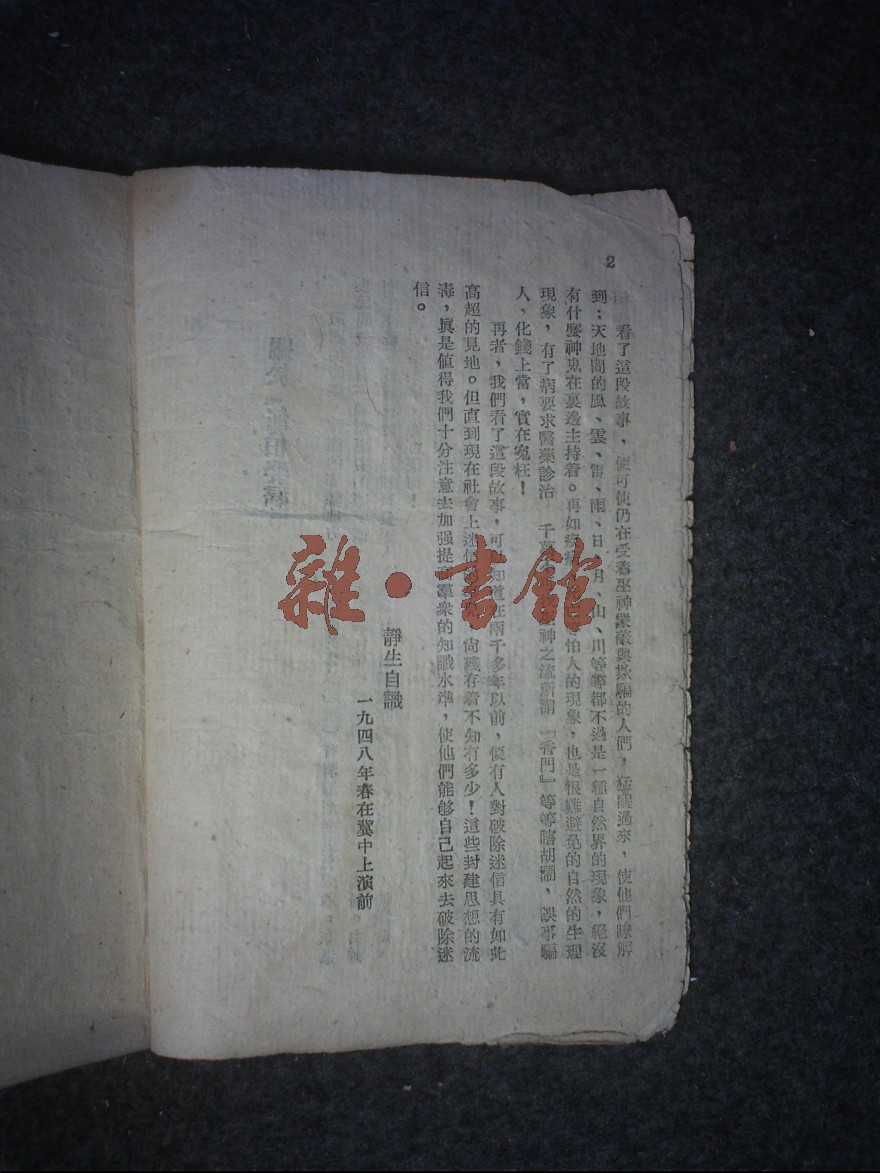 2
看了這段故事，便可使仍在受着巫神蒙蔽與欺騙的人們，猛醒過來，使他們瞭解
到：天地間的風、雲、雷、雨、日、月、山、川等等都不過是一種自然界的現象，絕沒
有什麼神鬼在裏邊主持着。再如疾病怕人的現象，也是很難避免的自然的生理
現象，有了病要求醫藥診治 千萬神之流所謂「香門」等等瞎胡鬧，誤事騙
人，化錢上當，實在寃枉！
再者，我們看了這段故事，可以知道在兩千多年以前，便有人對破除迷信具有如此
高超的見地。但直到現在社會上迷信尙殘存着不知有多少！這些封建思想的流
毒，眞是值得我們十分注意去加强提高羣衆的知識水準，使他們能够自己起來去破除迷
信。
靜生自識
一九四八年春在冀中上演前
雜·書館